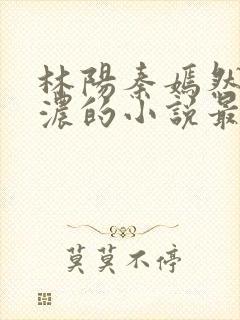 林陽秦嫣然
濃的小說最
莫莫不停